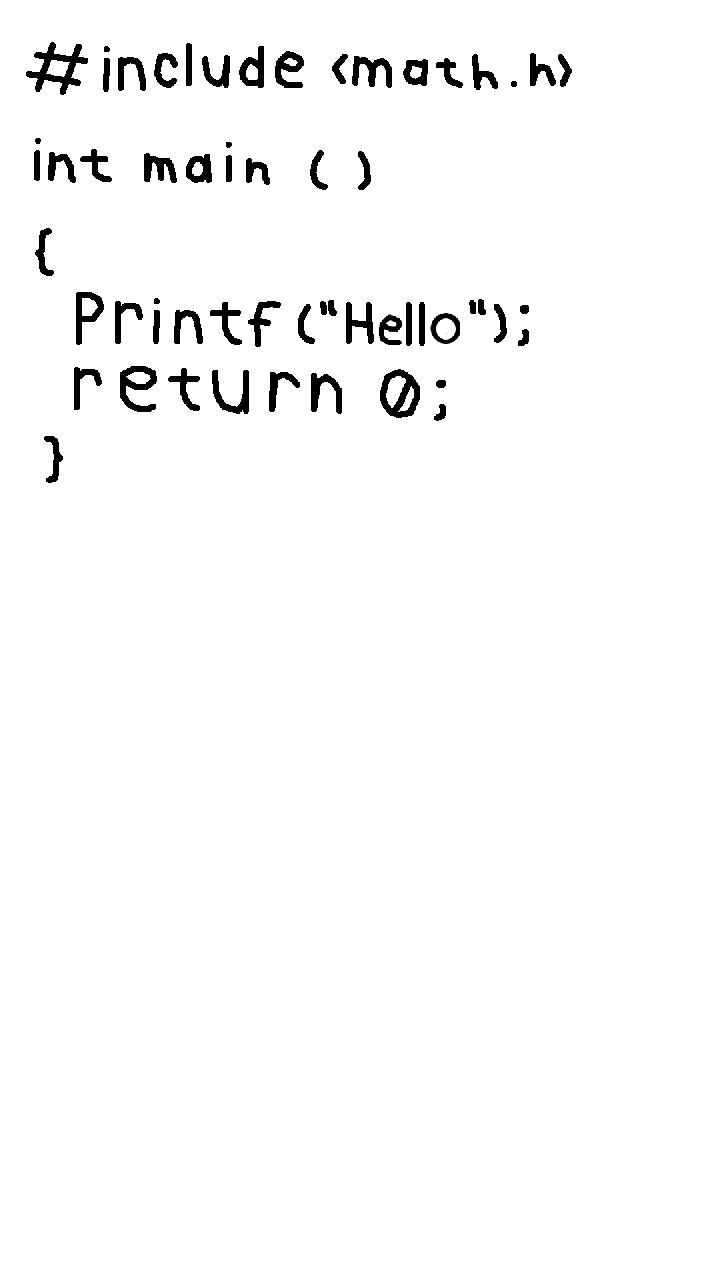 #include <math.h>
int main ( )
{
Printf ("Hello");
return 0;
}